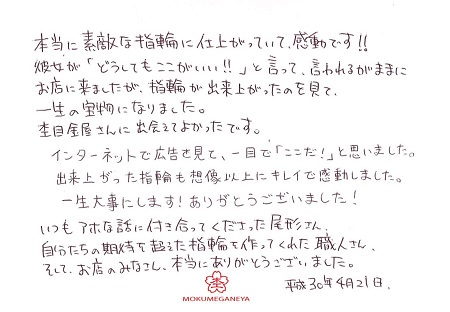 本当に素敵な指輪に仕上がっていて、感動です!!
彼女が「どうしてもここがいい!!」と言って、言われるがままに
お店に来ましたが、指輪が出来上がったのを見て、
一生の宝物になりました。
杢目金屋さんに出会えてよかったです。
インターネットで広告を見て、一目で「ここだ!」と思いました。
出来上がった指輪も想像以上にキレイで感動しました。
一生大事にします!ありがとうございました!
いつもアホな話に付き合ってくださった尾形さん、
自分たちの期待を超えた指輪を作ってくれた職人さん、
そして、お店のみなさん、本当にありがとうございました。
平成30年4月21日.
杢
MOKUMEGANEYA